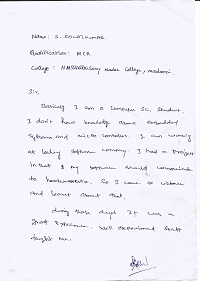 Name: S. Kowsikumar
Qualification: MCA
College: NMSVellaisamy Nadar College, Madurai.
Sir,
Basically I am a Computer Sci. Student.
I don't have knowledge about embedded
Systems and micro controllers. I am working
at leading Software company. I had a Project
in that my Software should communicate
to hardware. So I came to
and learnt about that.
during those days It was a
great Experience. Well experienced Staff
taught me.